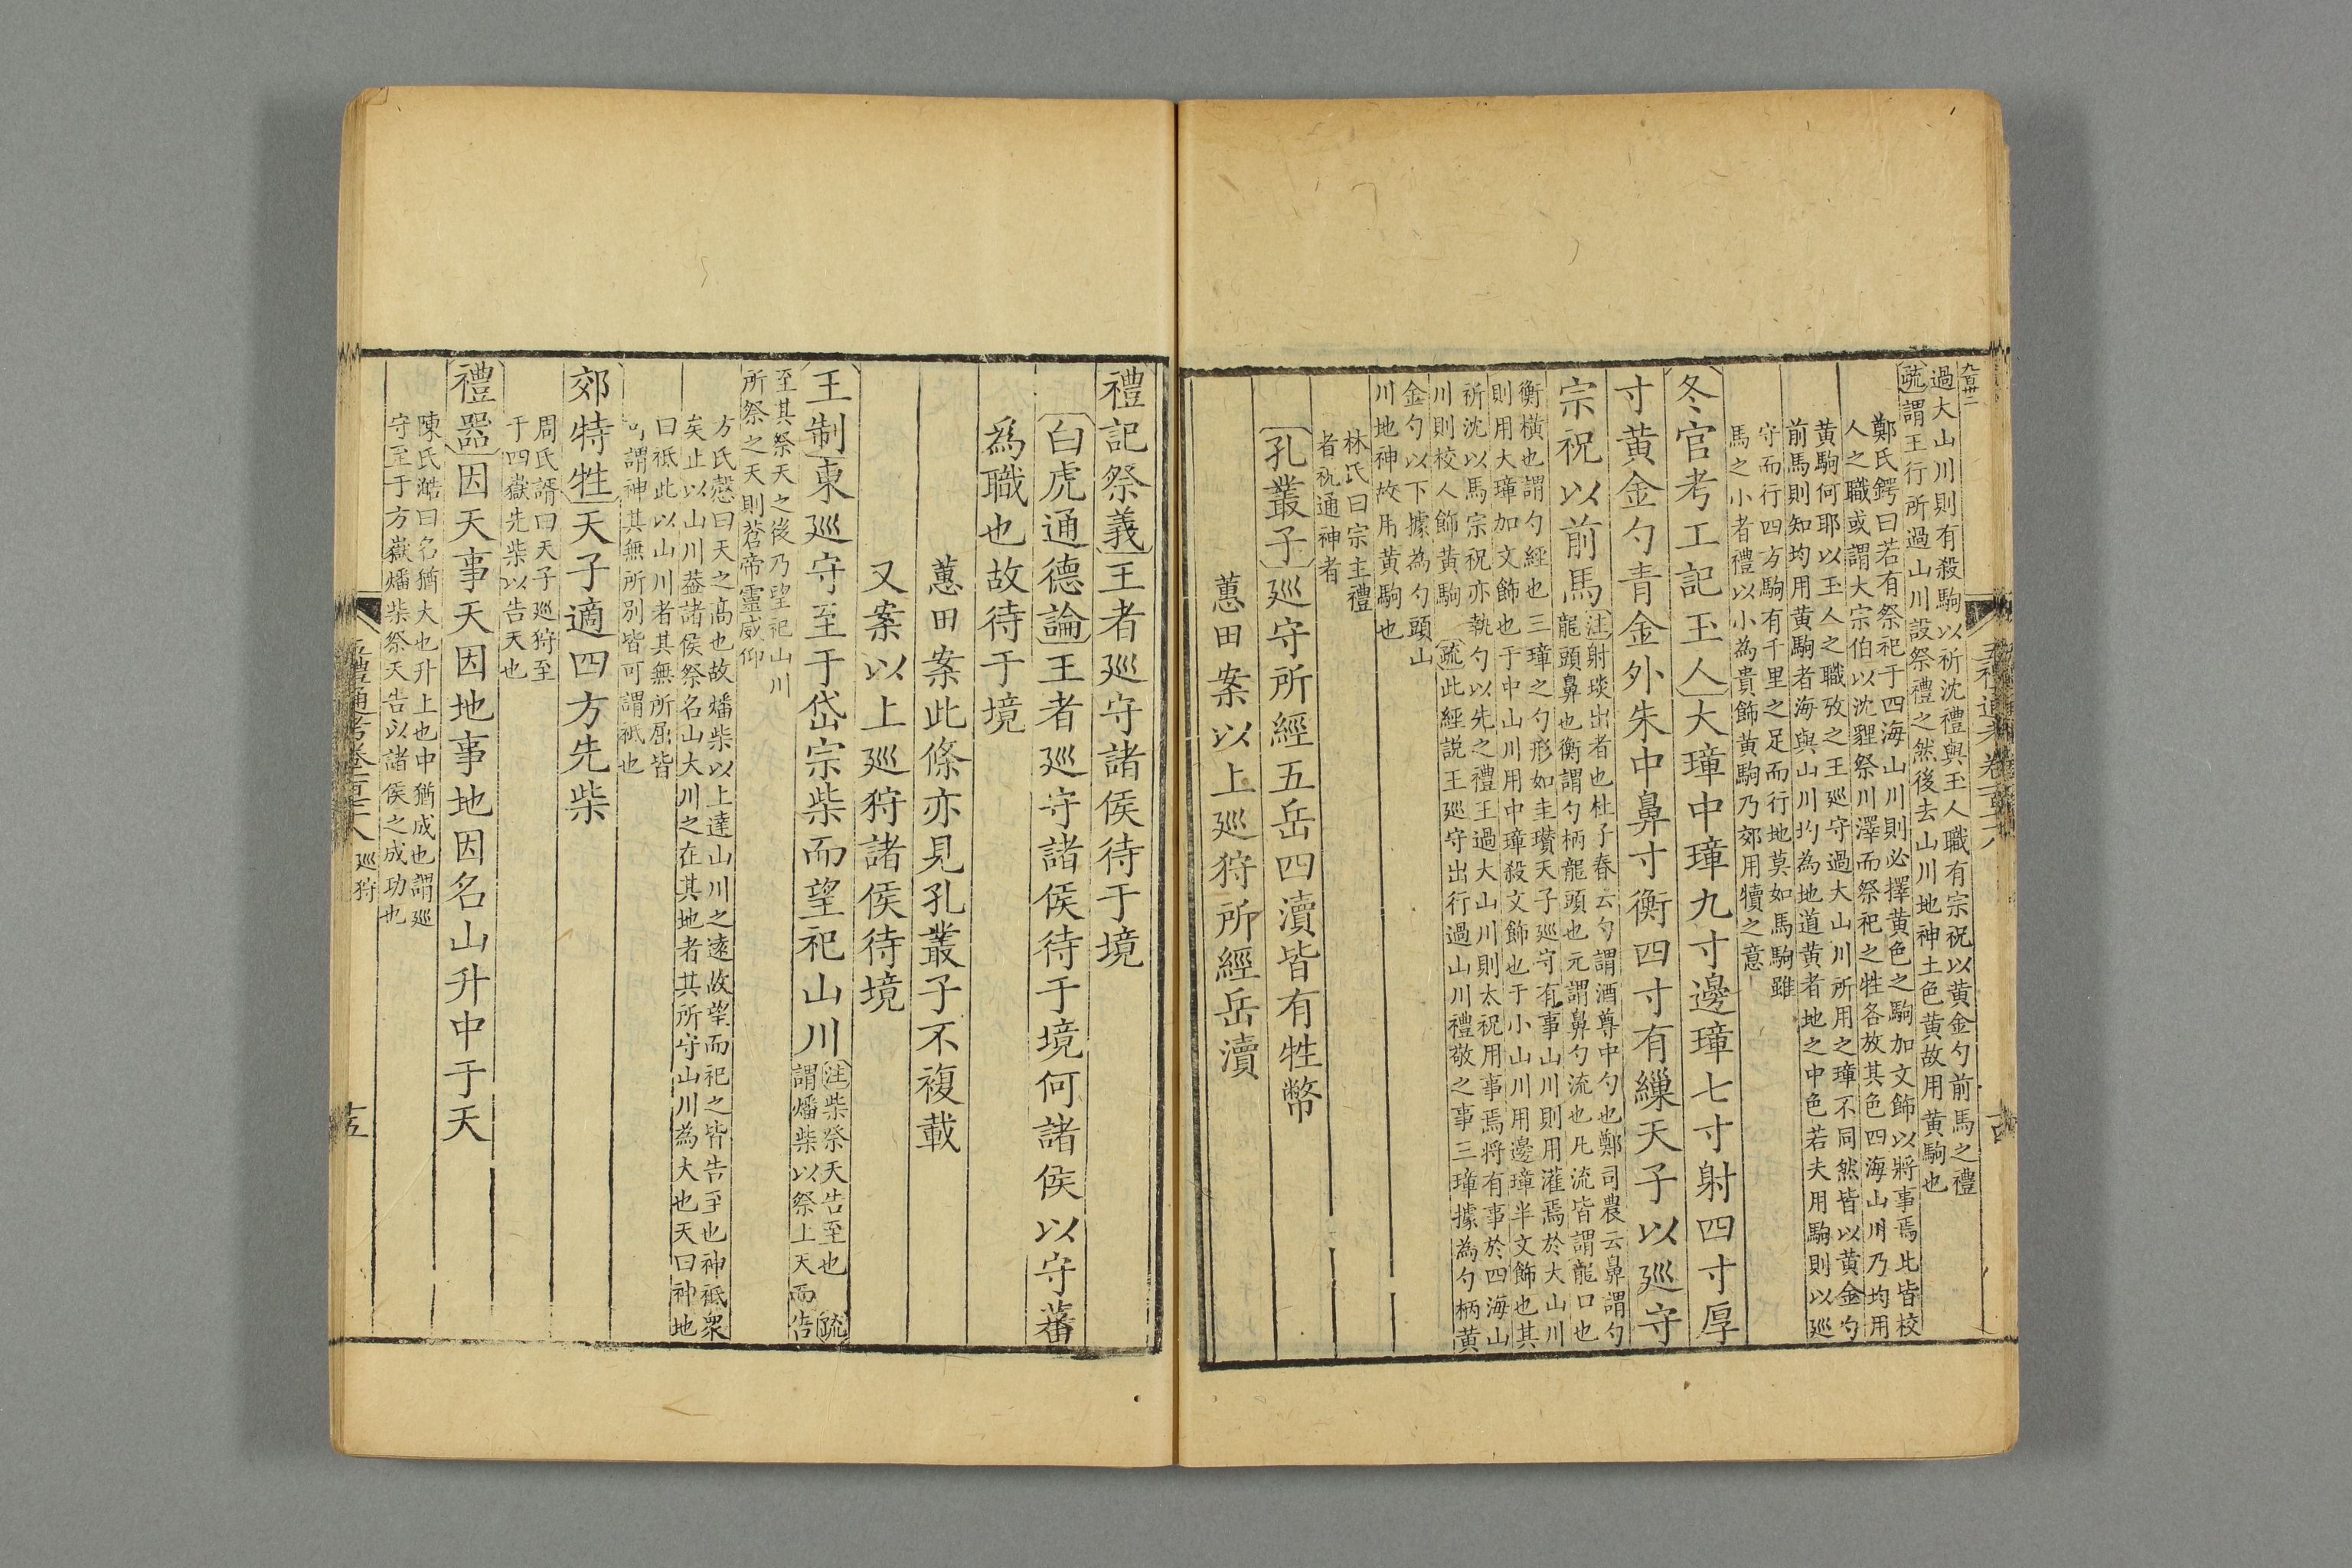 過大山川則有殺駒以祈沈禮與玉人職有宗祝以黄金勺前馬之禮
疏謂王行所過山川設祭禮之然後去山川地神土色黄故用黄駒也
鄭氏鍔曰若有祭祀于四海山川則必擇黄色之駒加文飾以將事焉此皆校
人之職或謂大宗伯以沈貍祭川澤而祭祀之牲各放其色四海山川乃均用
黄駒何耶以玉人之職攷之王廵守過大山川所用之璋不同然皆以黄金勺
前馬則知均用黄駒者海與山川均為地道黄者地之中色若夫用駒則以廵
守而行四方駒有千里之足而行地莫如馬駒雖
馬之小者禮以小為貴飾黄駒乃郊用犢之意
冬官考工記玉人大璋中璋九寸邊璋七寸射四寸厚
寸黄金勺青金外朱中鼻寸衡四寸有繅天子以廵守
宗祝以前馬
注射琰出者也杜子春云勺謂酒尊中勺也鄭司農云鼻謂勺
龍頭鼻也衡謂勺柄龍頭也元謂鼻勺流也凡流皆謂龍口也
衡橫也謂勺經也三璋之勺形如圭瓚天子廵守有事山川則用灌焉於大山川
則用大璋加文飾也于中山川用中璋殺文飾也于小山川用邊璋半文飾也其
祈沈以馬宗祝亦執勺以先之禮王過大山川則太祝用事焉將有事於四海山
川則校人飾黄駒
疏此經説王廵守出行過山川禮敬之事三璋據為勺柄黄
金勺以下據為勺頭山
川地神故用黄駒也
林氏曰宗主禮
者祝通神者
孔叢子廵守所經五岳四瀆皆有牲幣
蕙田案以上廵狩所經岳瀆
禮記祭義王者廵守諸侯待于境
白虎通德論王者廵守諸侯待于境何諸侯以守蕃
為職也故待于境
蕙田案此條亦見孔叢子不複載
又案以上廵狩諸侯待境
王制東廵守至于岱宗柴而望祀山川
注柴祭天告至也 疏
謂燔柴以祭上天而告
至其祭天之後乃望祀山川
所祭之天則蒼帝靈威仰
方氏慤曰天之高也故燔柴以上達山川之遠故望而祀之皆告至也神祗衆
矣止以山川葢諸侯祭名山大川之在其地者其所守山川為大也天曰神地
曰祗此以山川者其無所屈皆
可謂神其無所別皆可謂祗也
郊特牲天子適四方先柴
周氏諝曰天子廵狩至
于四嶽先柴以告天也
禮器因天事天因地事地因名山升中于天
陳氏澔曰名猶大也升上也中猶成也謂廵
守至于方嶽燔柴祭天告以諸侯之成功也
禮通考卷一百七十八 廵狩
十五